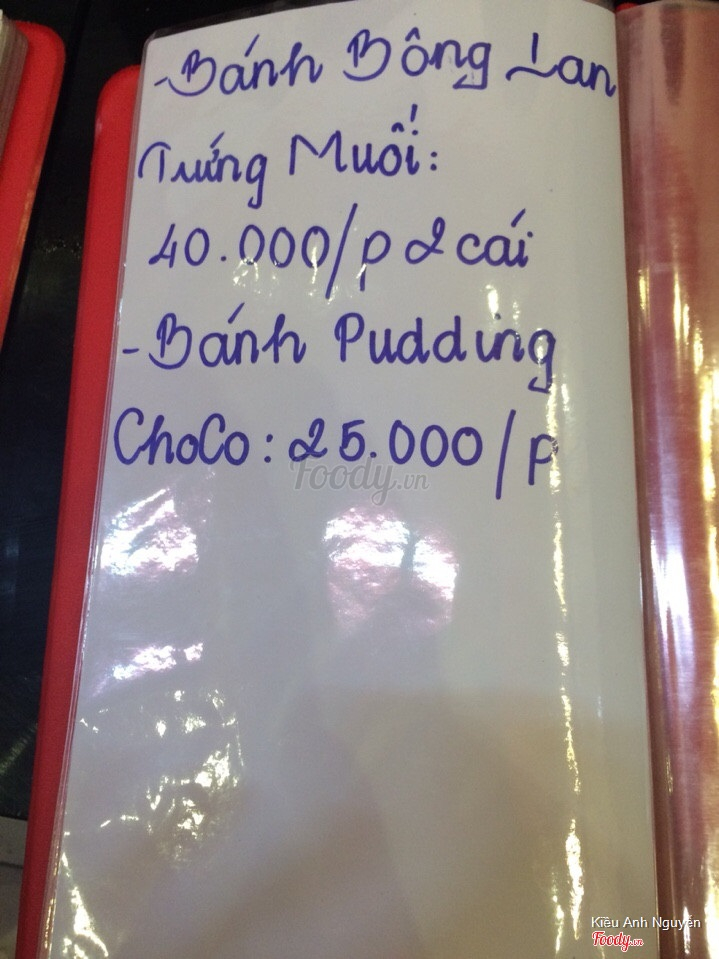 -Bánh Bông Lan
Trứng Muối:
40.000/p 2 cái
-Bánh Pudding
ChoCo: 25.000/p
Foody.vn
Kiều Anh Nguyễn
Foody.vn